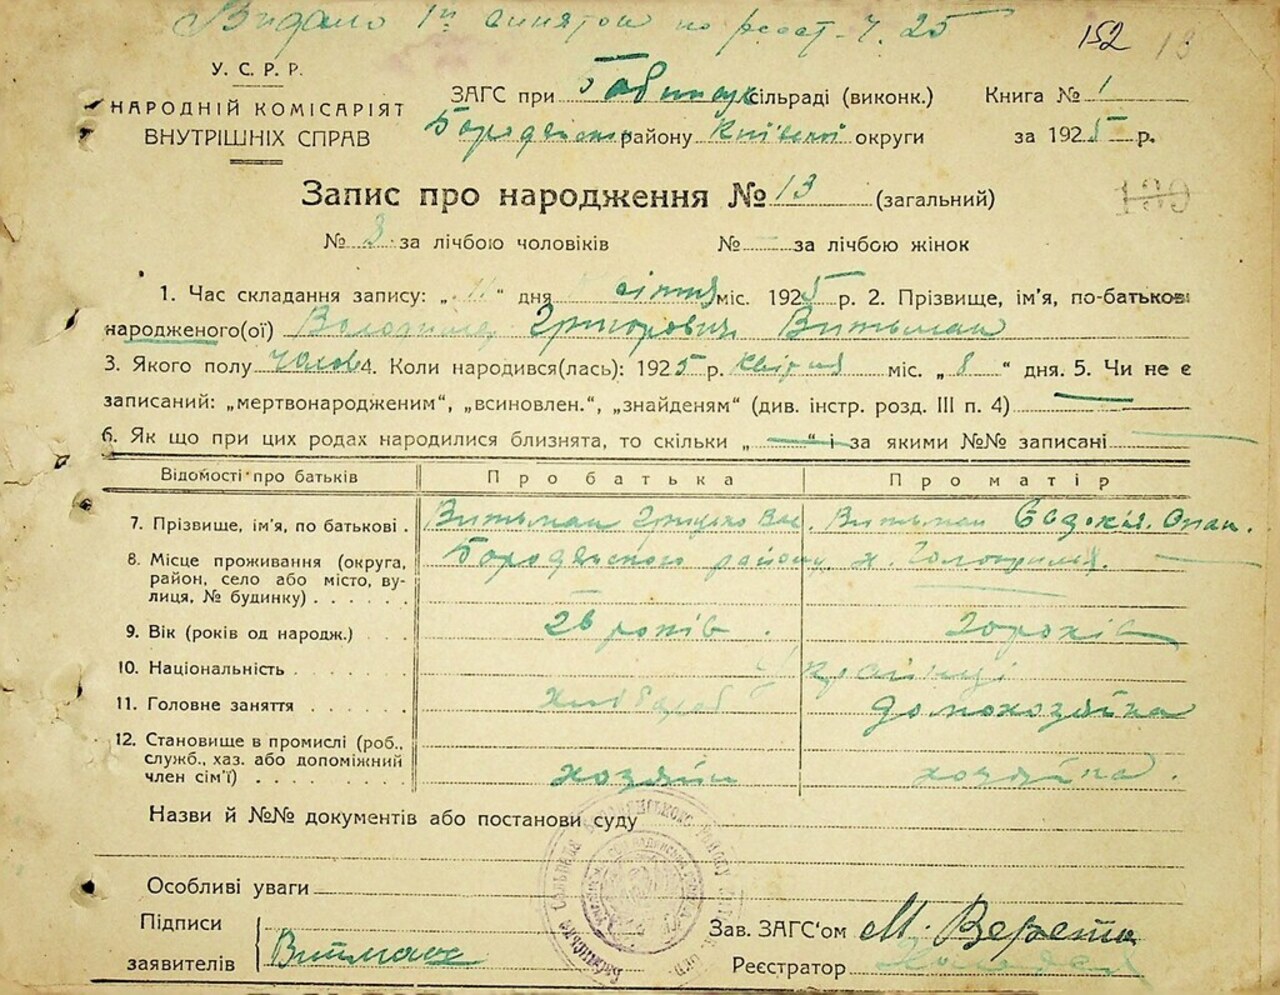 Видано 1й витяг по реєст. Ч. 25
152 13
У. С. Р. Р.
НАРОДНІЙ КОМІСАРІЯТ
ВНУТРІШНІХ СПРАВ
ЗАГС при сільраді (виконк.) Книга № 1
Бородянського району Київської округи за 1925 р.
Запис про народження № 13 (загальний)
139
№ 8 за лічбою чоловіків № — за лічбою жінок
1. Час складання запису: „11“ дня квітня міс. 1925 р. 2. Прізвище, ім'я, по-батькові
народженого(ої) Володимир Григорович Витьман
3. Якого полу чолов 4. Коли народився(лась): 1925 р. квітня міс. „8“ дня. 5. Чи не є
записаний: „мертвонародженим“, „всиновлен.“, „знайденям“ (див. інстр. розд. III п. 4) —
6. Як що при цих родах народилися близнята, то скільки „—“ і за якими №№ записані —
Відомості про батьків Про батька Про матір
7. Прізвище, ім'я, по батькові. Витьман Грицько Вас. Витьман Євдокія. Опан.
8. Місце проживання (округа, район, село або місто, вулиця, № будинку) Бородянського району х.
9. Вік (років од народж.) 26 років. 20 років
10. Національність Українці
11. Головне заняття хлібороб домохозяйка
12. Становище в промислі (роб., служб., хаз. або допоміжний член сім'ї) хозяїн хозяйка.
Назви й №№ документів або постанови суду
Особливі уваги
Підписи заявителів Витман
Зав. ЗАГС'ом М. Верета
Реєстратор